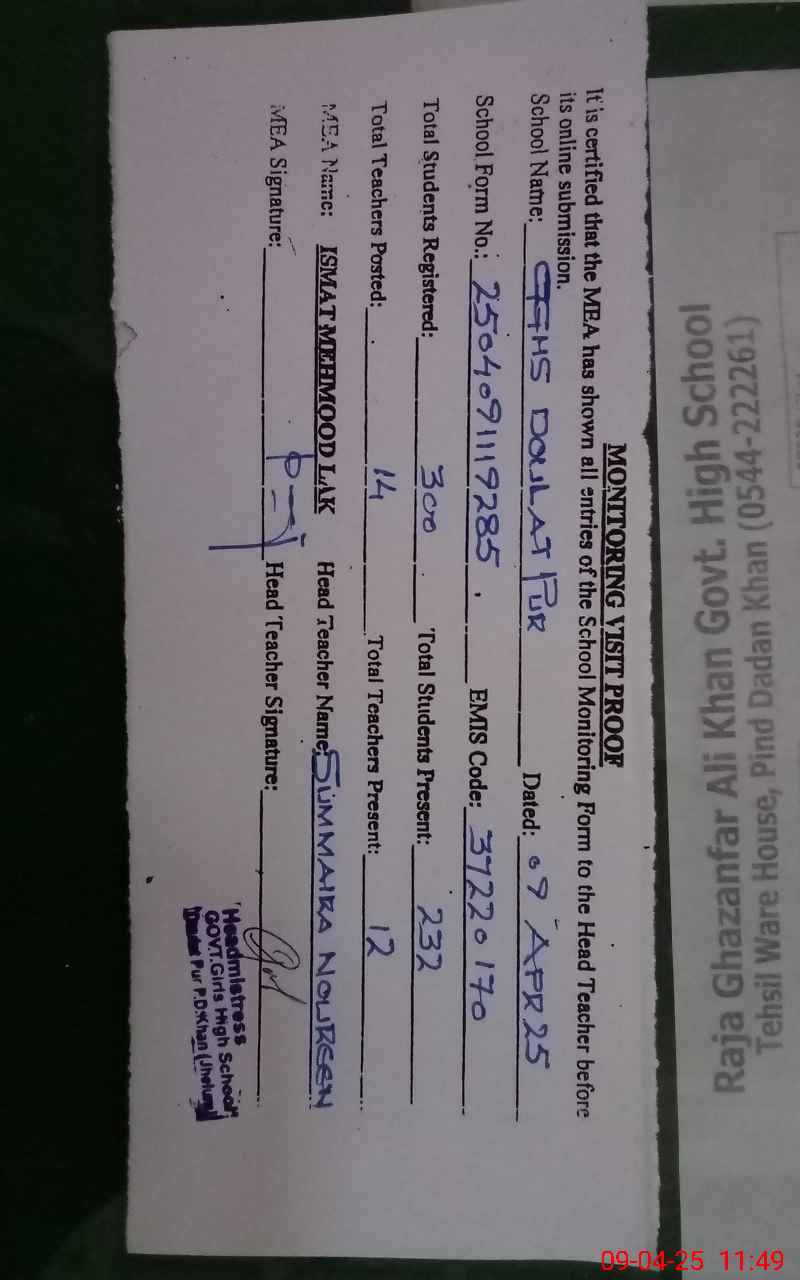 MONITORING VISIT PROOF
It is certified that the MEA has shown all entries of the School Monitoring Form to the Head Teacher before
its online submission.
School Name: GGHS DOULAT PUR Dated: 09 APR 25
School Form No.: 2504091119285 . EMIS Code: 37220170
Total Students Registered: 300 Total Students Present: 232
Total Teachers Posted: 14 Total Teachers Present: 12
MEA Name: ISMAT MEHMOOD LAK Head Teacher Name: SUMMAIRA NOUREEN
MEA Signature: Head Teacher Signature:
Headmistress
GOVT.Girls High School
Daulat Pur P.D.Khan (Jhelum)
Raja Ghazanfar Ali Khan Govt. High School
Tehsil Ware House, Pind Dadan Khan (0544-222261)
09-04-25 11:49